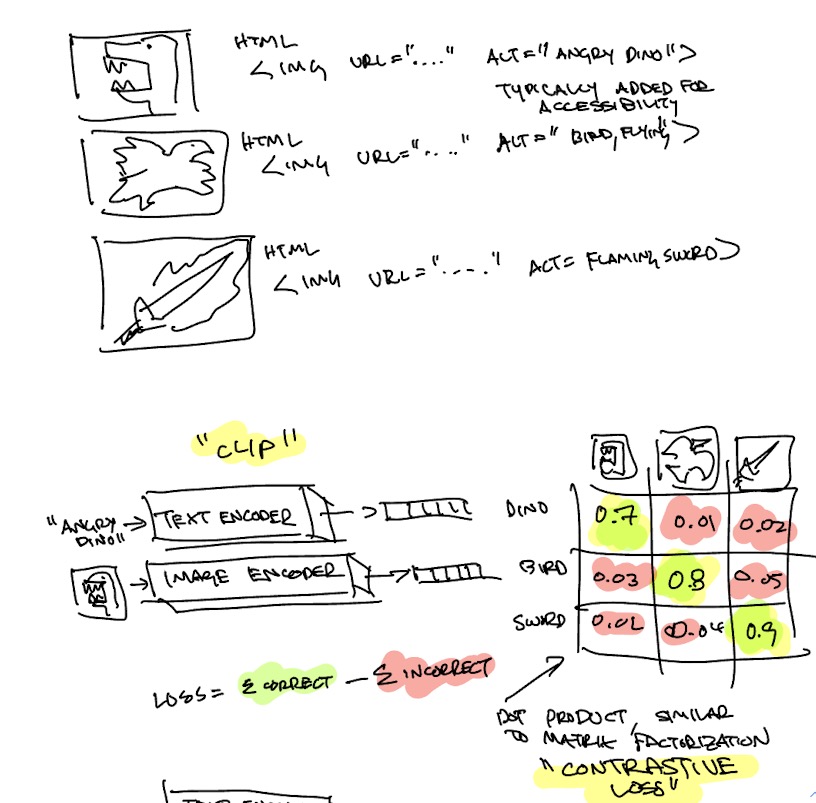 HTML
<IMG URL="...." ALT="ANGRY DINO">
TYPICALLY ADDED FOR
ACCESSIBILITY
HTML
<IMG URL="....." ALT="BIRD, FLYING">
HTML
<IMG URL="....." ALT= FLAMING SWORD>
"CLIP"
"ANGRY
DINO"
TEXT ENCODER
IMAGE ENCODER
LOSS = Σ CORRECT - Σ INCORRECT
DINO 0.7 0.01 0.02
BIRD 0.03 0.8 0.05
SWORD 0.02 0.04 0.9
DOT PRODUCT, SIMILAR
TO MATRIX FACTORIZATION
"CONTRASTIVE
LOSS"